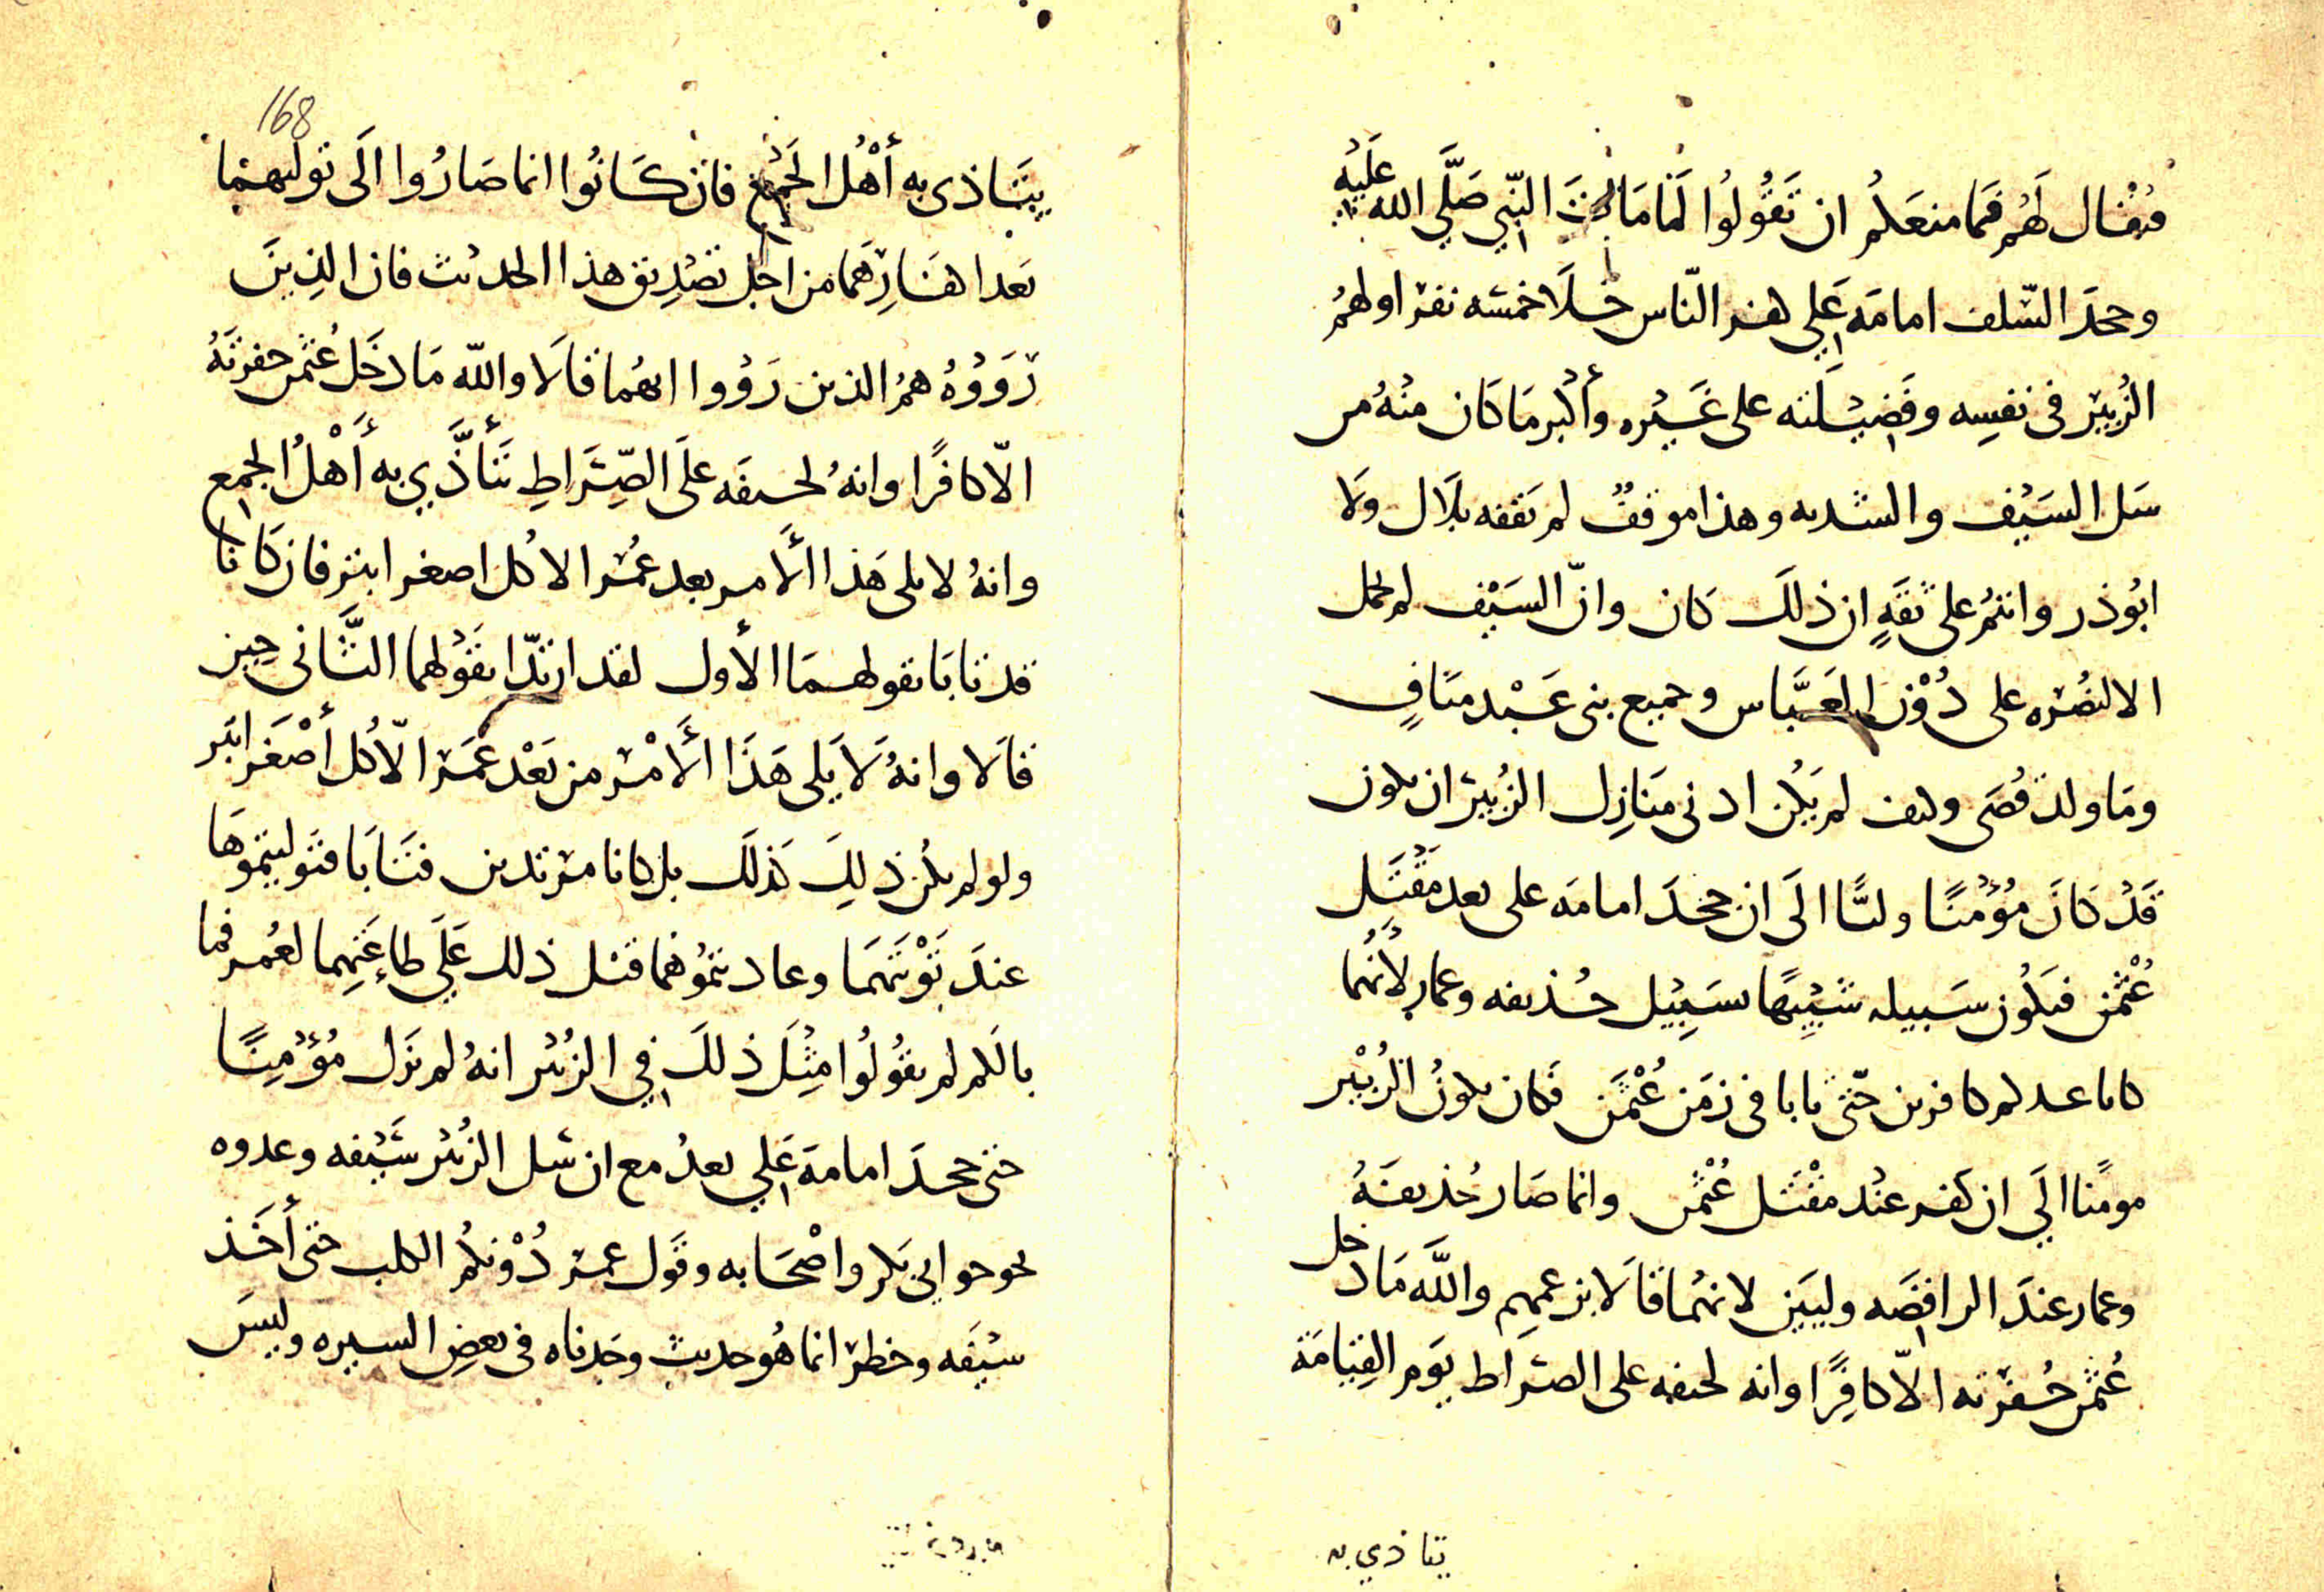 فيقال لهم فما منعكم ان تقولوا لما مات النبي صلى الله عليه
وجحد السلف امامه علي كفر الناس خلا خمسه نفر اولهم
الزبير فى نفسه وفضيلته على غيره وأكبر ما كان منه من
سل السيف والشد به وهذا موقف لم يقفه بلال ولا
ابوذر وانتم على ثقة ان ذلك كان وانّ السيف لم يحمل
الا لنصره على دون العباس وجميع بنى عبد مناف
وما ولد قصى وكيف لم يكن ادنى منازل الزبير ان يكون
قد كان مؤمنا وليّا الى ان جحد امامه على بعد مقتل
عثمن فيكون سبيله شبيها بسبيل حذيفه وعمار لأنهما
كانا عندكم كافرين حتى تابا فى زمن عثمن فكان يكون الزبير
مومنا الي ان كفر عند مقتل عثمن وانما صار حذيفة
وعمار عند الرافضه وليين لانهما قالا بزعمهم والله ما دخل
عثمن حفرته الاّ كافرًا وانه لجيفه على الصراط يوم القيامة
يتاذي به
168
يتاذى به أهل الجمع فان كانوا انما صاروا الى توليهما
بعد اكفارهما من اجل تصديق هذا الحديث فان الذين
رووه هم الذين رووا انهما قالا والله ما دخل عثمن حفرته
الاّ كافرًا وانه لجيفه على الصراط يتأذّي به أهل الجمع
وانه لا يلى هذا الأمر بعد عمر الا كل اصغر ابتر فان كانا
قد تابا بقولهما الأول لقد ارتدّا بقولهما الثانى حين
قالا وانه لا يلى هذا الأمر من بعد عمر الاّ كل أصغر ابتر
ولو لم يكن ذلك كذلك بل كانا مرتدين فتابا فتوليتموها
عند توبتهما وعاديتموهما قبل ذلك علي طاعتهما لعمر فما
بالكم لم يقولوا مثل ذلك في الزبير انه لم يزل مؤمنا
حتى جحد امامة علي بعد مع ان سل الزبير سيفه وعدوه
نحو ابي بكر واصحابه وقول عمر دونكم الكلب حتى أخذ
سيفه وخطر انما هو حديث وجدناه فى بعض السيره وليس